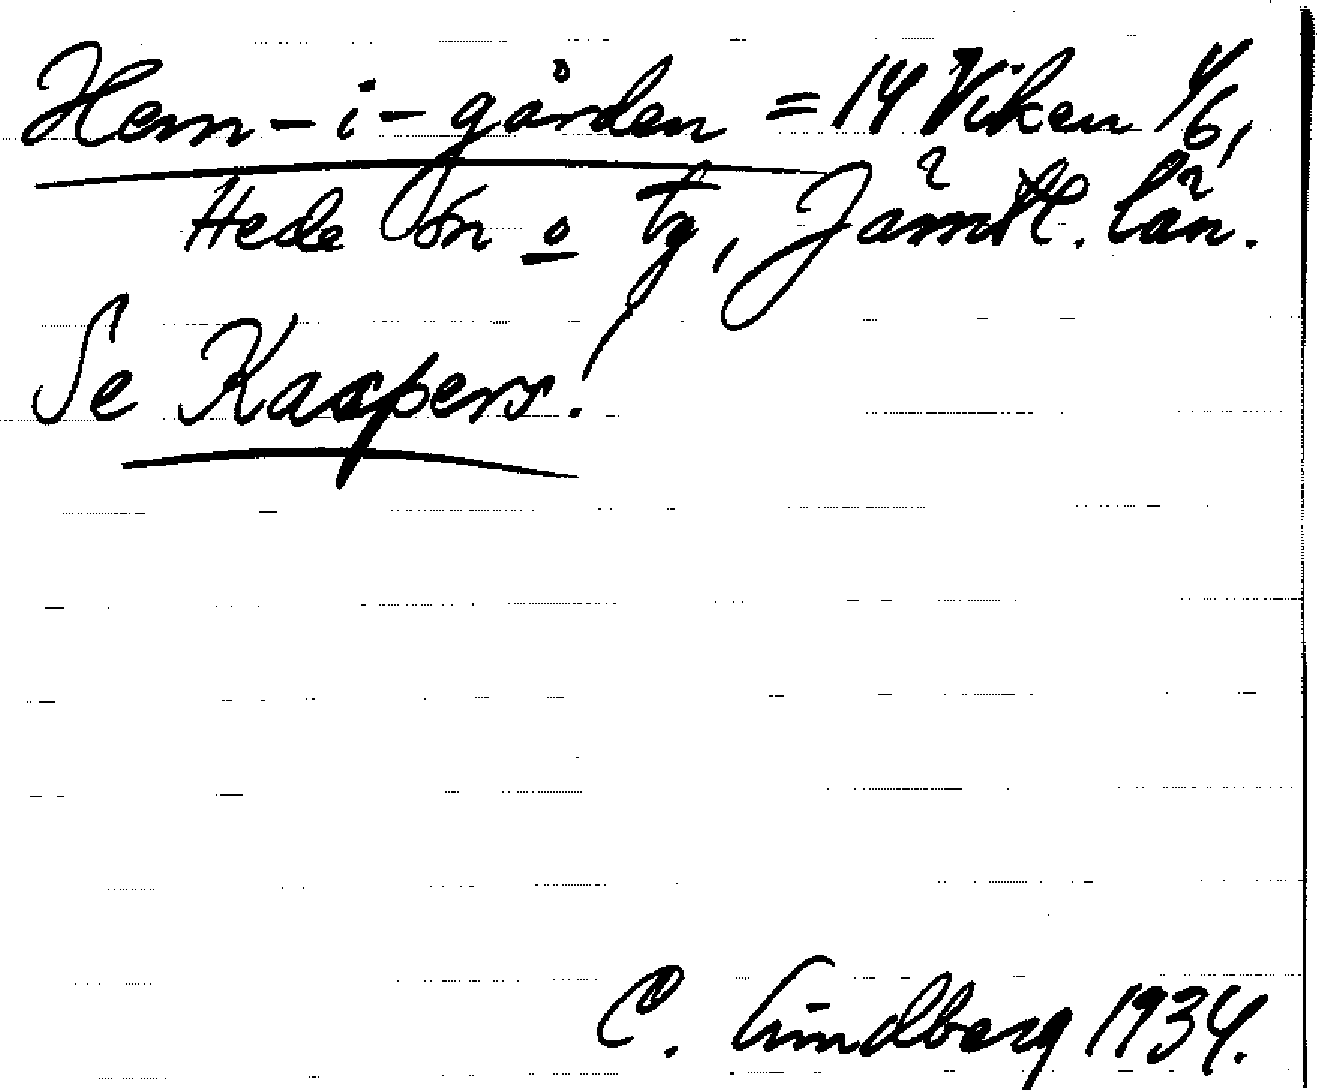 Hem-i-gården = 14 Viken 1/6,
Hede sn o tg, Jämtl. län.
Se Kaspers!
C. Lindberg 1934.